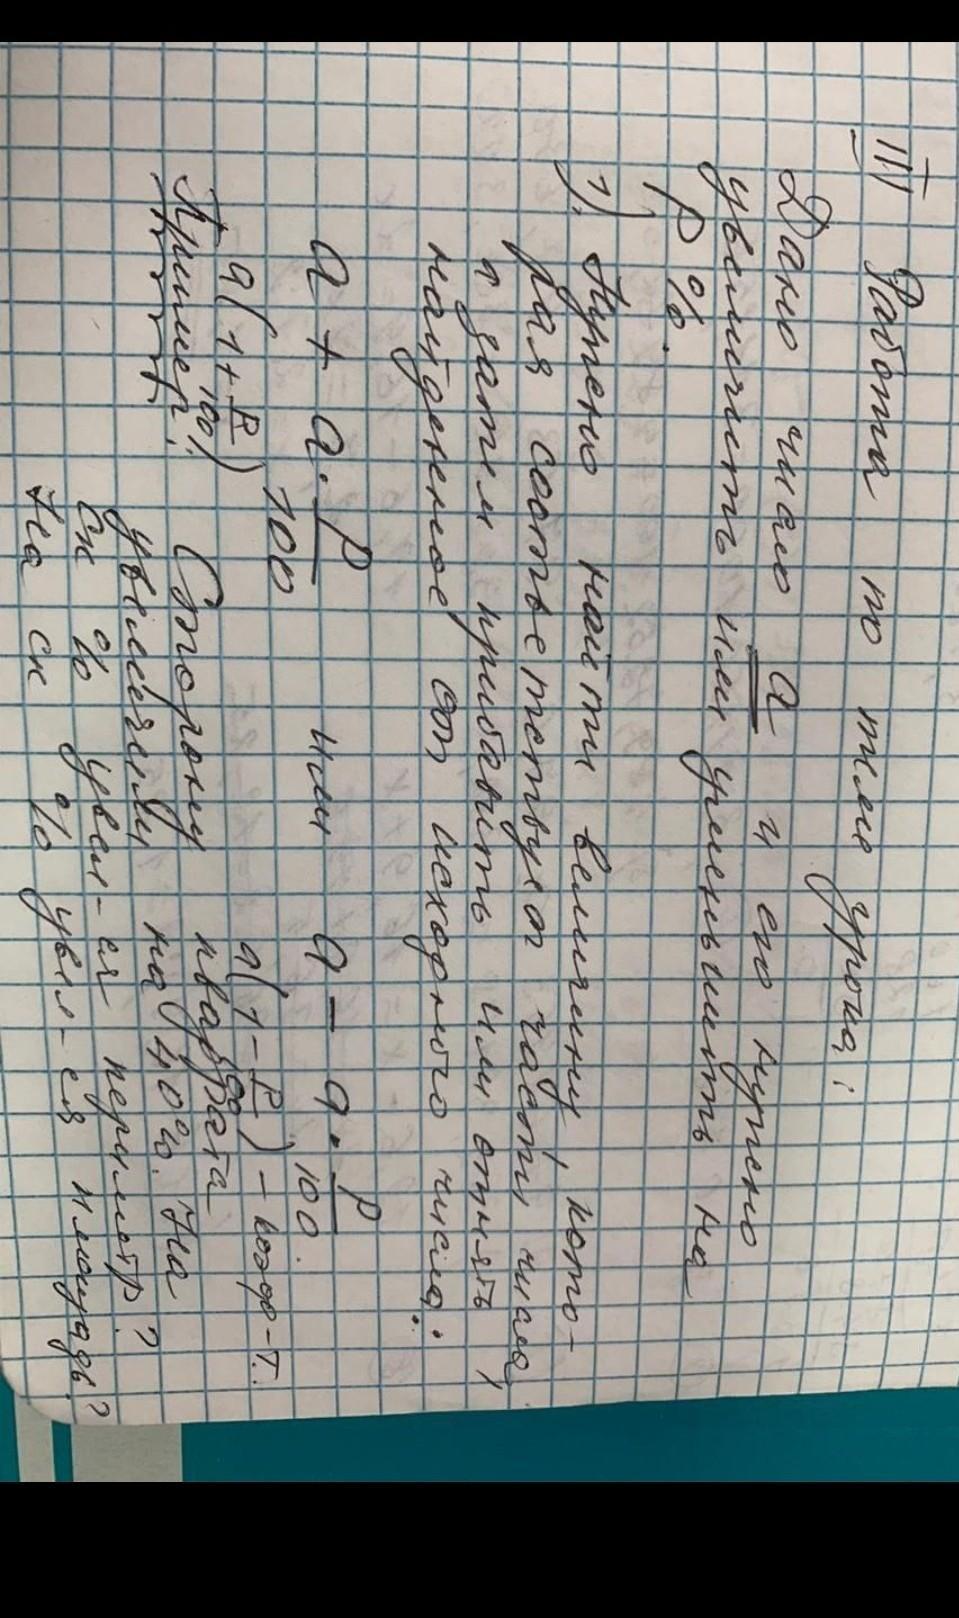 III Работа по теме урока:
Дано число a и его нужно
увеличить или уменьшить на
p %.
1). Нужно найти величину, кото-
рая соответствует части числа,
а затем прибавить или отнять
найденное от исходного числа:
a + a · p/100 или a - a · p/100.
a(1 + p/100) a(1 - p/100) - коэф-т.
Пример: Сторону квадрата
увеличили на 40%. На
ск % увел-ся периметр?
На ск % увел-ся площадь?